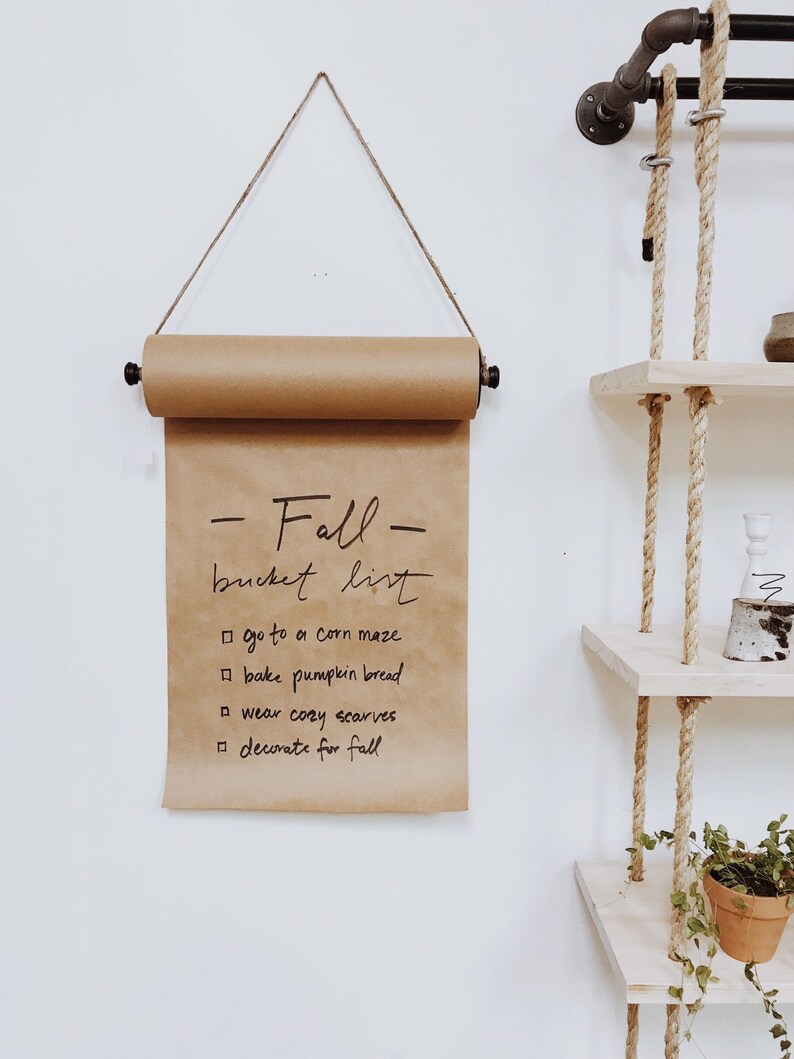 - Fall -
bucket list
□ go to a corn maze
□ bake pumpkin bread
□ wear cozy scarves
□ decorate for fall